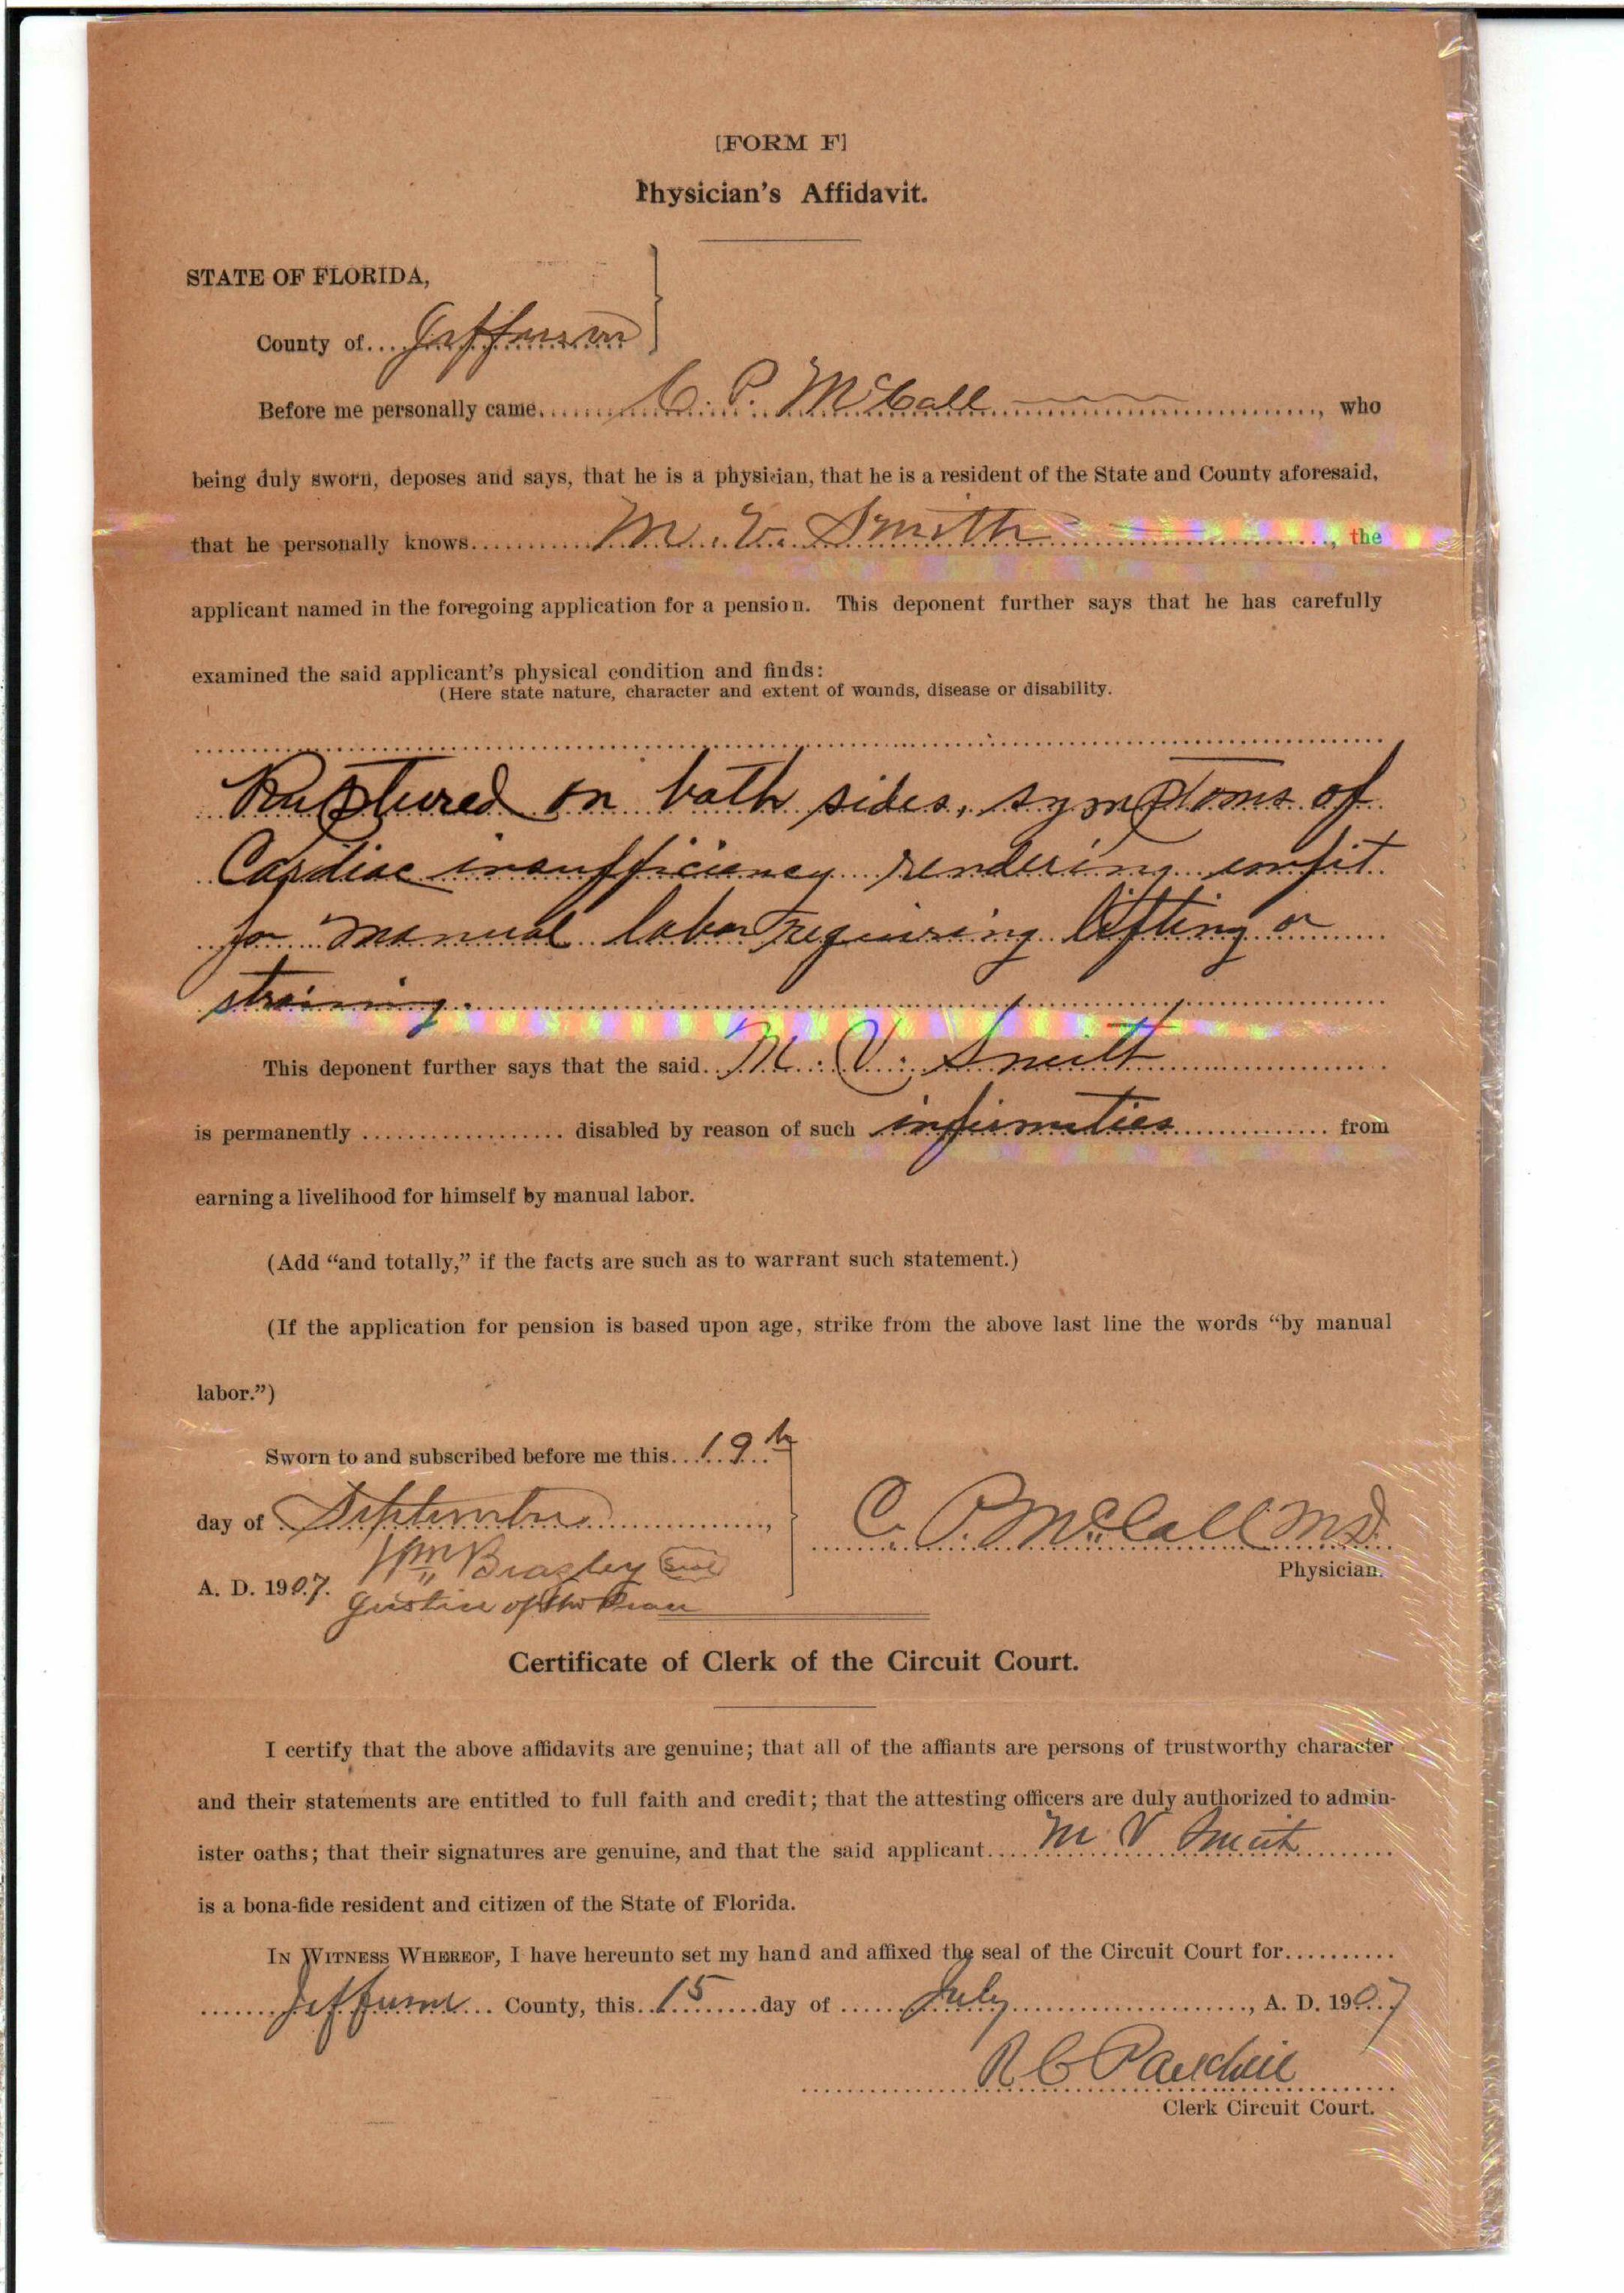 [FORM F]
Physician's Affidavit.
STATE OF FLORIDA,
County of Jefferson
Before me personally came C. P. McCall, who
being duly sworn, deposes and says, that he is a physician, that he is a resident of the State and County aforesaid,
that he personally knows M. V. Smith, the
applicant named in the foregoing application for a pension. This deponent further says that he has carefully
examined the said applicant's physical condition and finds:
(Here state nature, character and extent of wounds, disease or disability.
Ruptured on both sides, symptoms of
Cardiac insufficiency rendering unfit
for manual labor requiring lifting or
straining.
This deponent further says that the said M. V. Smith
is permanently disabled by reason of such infirmities from
earning a livelihood for himself by manual labor.
(Add “and totally,” if the facts are such as to warrant such statement.)
(If the application for pension is based upon age, strike from the above last line the words “by manual
labor.”)
Sworn to and subscribed before me this 19th
day of September,
C. P. McCall MD.
Physician.
Wm Seal
A. D. 1907.
Justice of the Peace
Certificate of Clerk of the Circuit Court.
I certify that the above affidavits are genuine; that all of the affiants are persons of trustworthy character
and their statements are entitled to full faith and credit; that the attesting officers are duly authorized to admin-
ister oaths; that their signatures are genuine, and that the said applicant M V Smith
is a bona-fide resident and citizen of the State of Florida.
IN WITNESS WHEREOF, I have hereunto set my hand and affixed the seal of the Circuit Court for
Jefferson County, this 15 day of July, A. D. 1907
R C
Clerk Circuit Court.